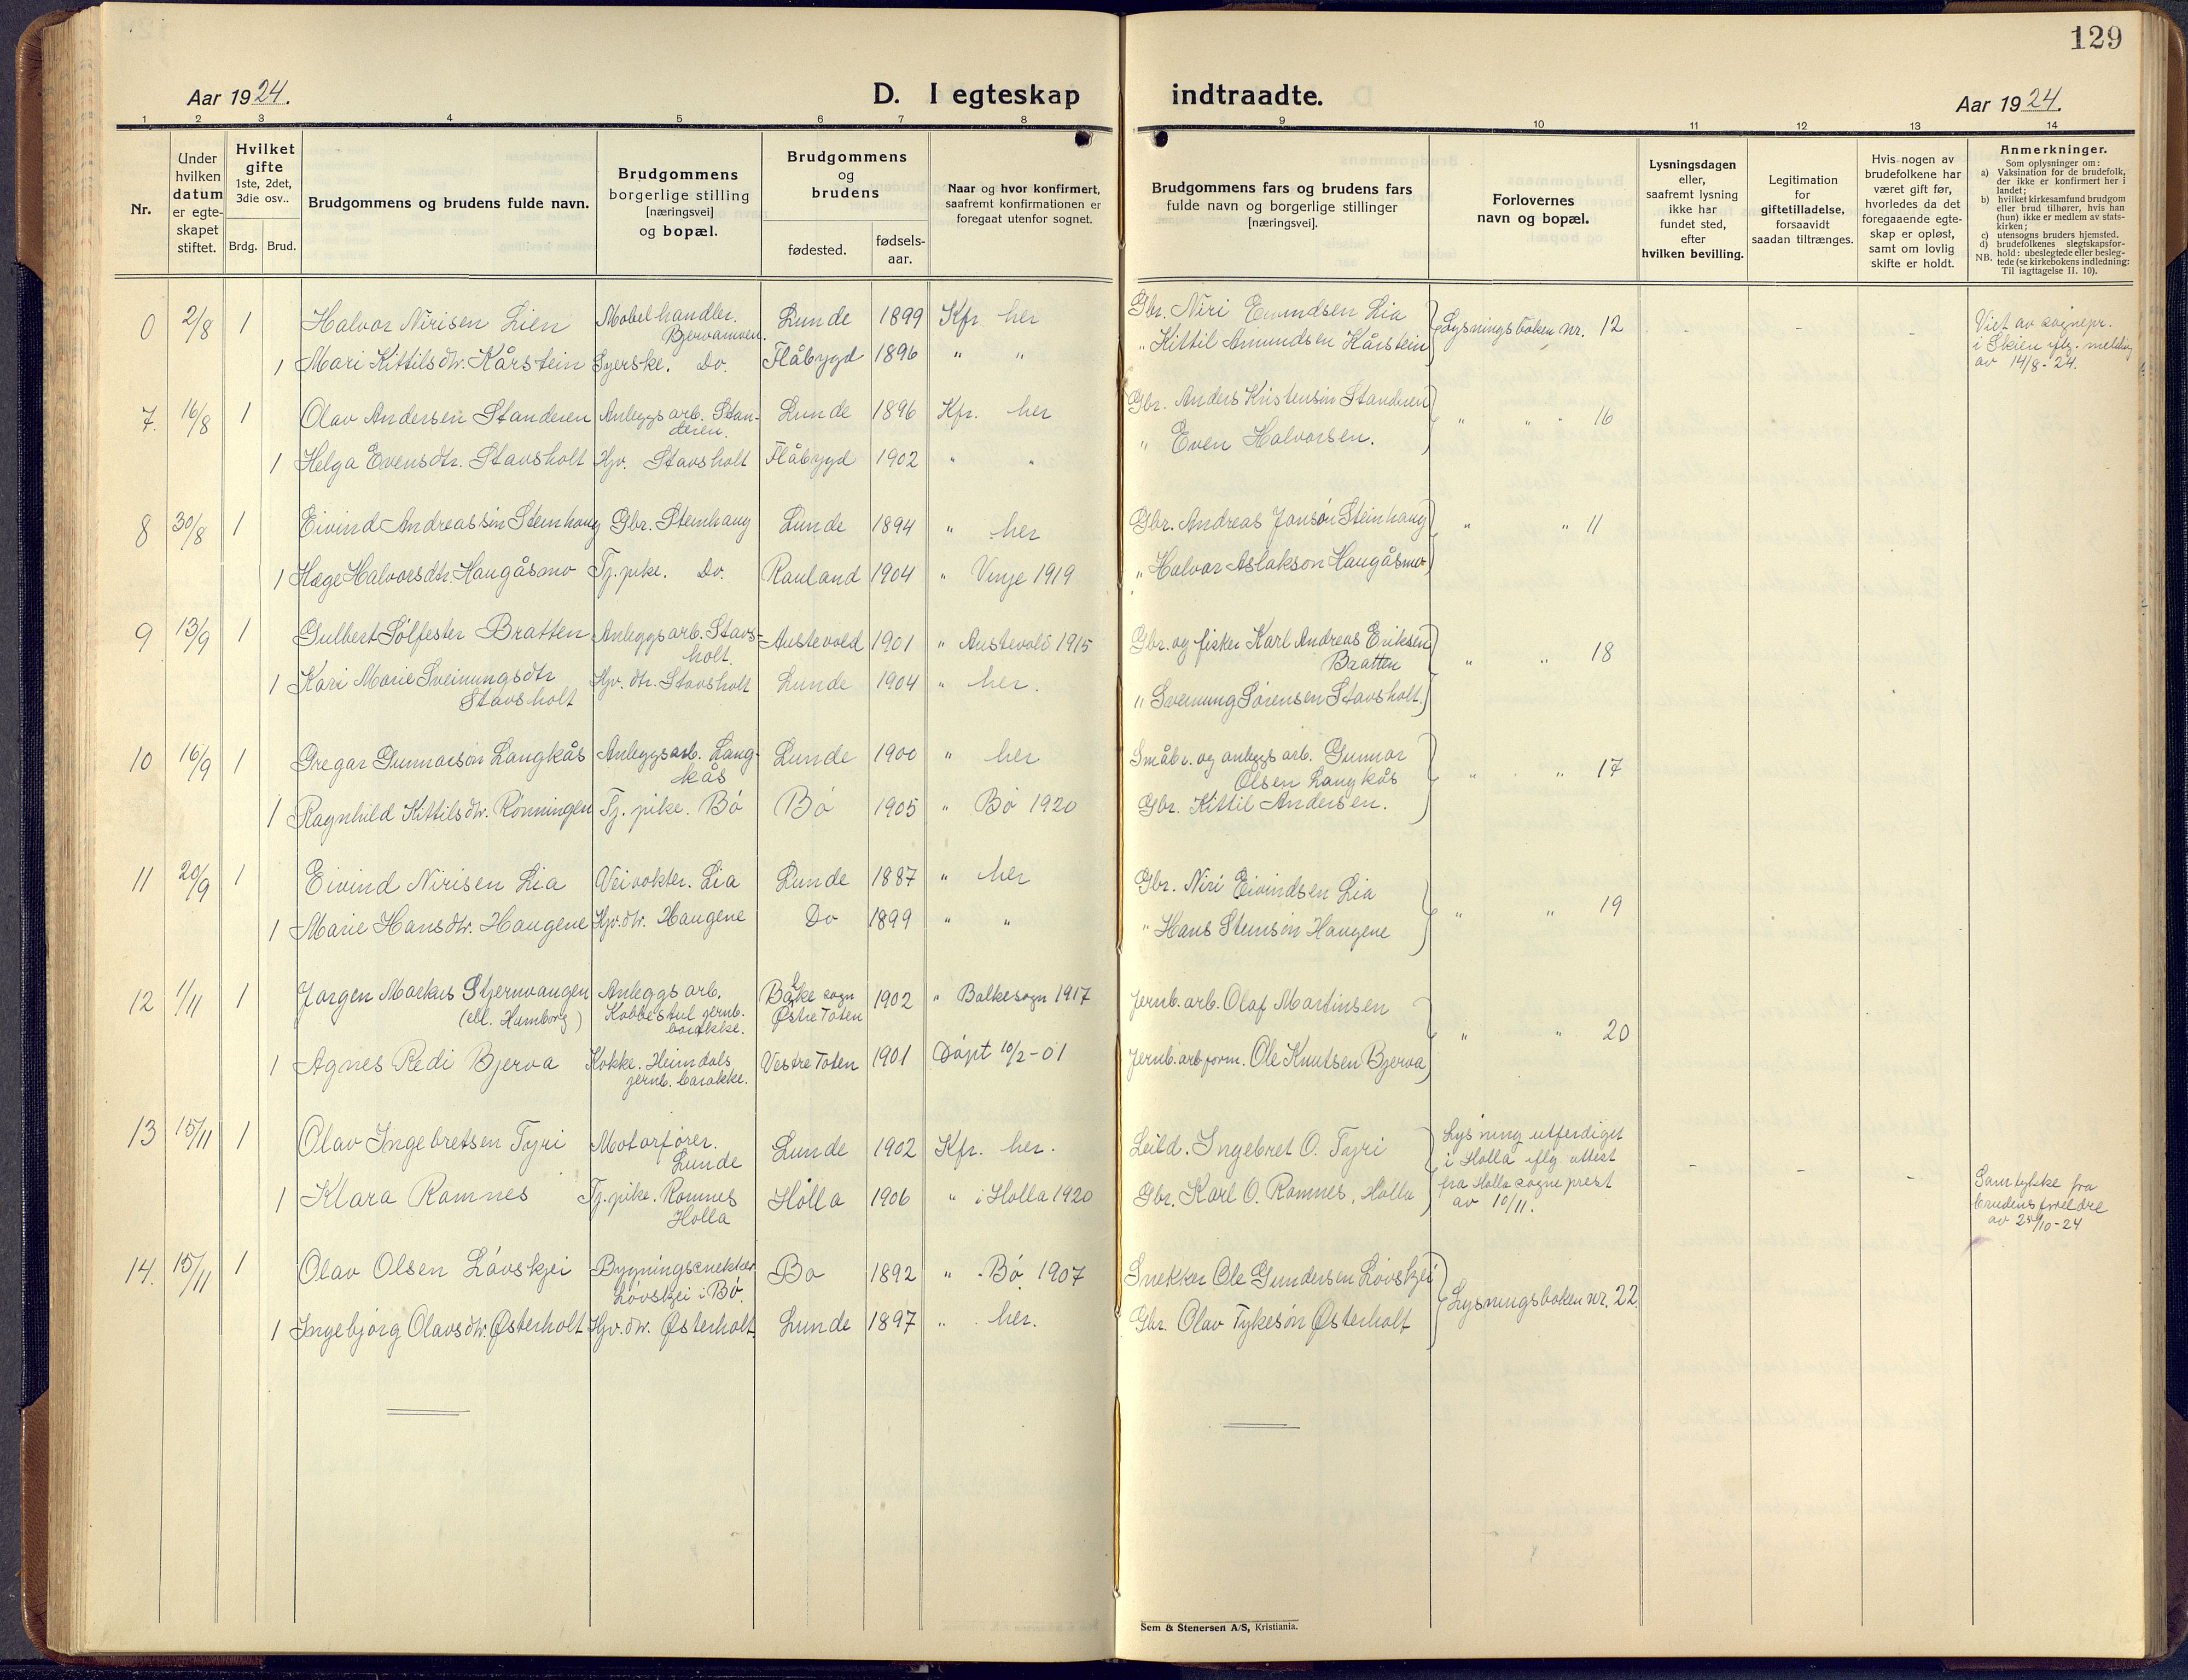 129
Aar 1924.
D. I egteskap indtraadte.
Aar 1924.
1 2 3 4 5 6 7 8 9 10 11 12 13 14
Nr.
Under hvilken datum er egteskapet stiftet.
Hvilket gifte 1ste, 2det, 3die osv..
Brdg. Brud.
Brudgommens og brudens fulde navn.
Brudgommens borgerlige stilling [næringsvei] og bopæl.
Brudgommens og brudens
fødested.
fødsels-aar.
Naar og hvor konfirmert, saafremt konfirmationen er foregaat utenfor sognet.
Brudgommens fars og brudens fars fulde navn og borgerlige stillinger [næringsvei].
Forlovernes navn og bopæl.
Lysningsdagen eller, saafremt lysning ikke har fundet sted, efter hvilken bevilling.
Legitimation for giftetilladelse, forsaavidt saadan tiltrænges.
Hvis nogen av brudefolkene har været gift før, hvorledes da det foregaaende egteskap er opløst, samt om lovlig skifte er holdt.
Anmerkninger.
Som oplysninger om:
a) Vaksination for de brudefolk, der ikke er konfirmert her i landet;
b) hvilket kirkesamfund brudgom eller brud tilhører, hvis han (hun) ikke er medlem av statskirken;
c) utensogns bruders hjemsted.
d) brudefolkenes slegtskapsforhold: ubeslegtede eller beslegtede (se kirkebokens indledning:
NB. Til iagttagelse II. 10).
0 2/8 1 Halvor Nirisen Lien Møbelhandler. Lunde 1899 Kfr. her Gbr. Niri Eivindsen Lia Lysningsboken nr. 12 - - - Viet av sognepr.
1 Mari Kittilsdtr. Kårstein Syerske. Do. Flåbygd 1896 " " " Kittil Amundsen Kårstein i Skien iflg. melding
av 14/8-24.
7. 16/8 1 Olav Andersen Standeren Anleggsarb. Stan- Lunde 1896 Kfr. her Gbr. Anders Kristensøn Standeren " " " 16
deren.
1 Helga Evensdtr. Stavsholt Gjv. Stavsholt Flåbygd 1902 " " " Even Halvorsen.
8 30/8 1 Eivind Andreassøn Steinhaug Gbr. Steinhaug Lunde 1894 " her Gbr. Andreas Jonsøn Steinhaug " " 11
1 Hæge Halvorsdtr. Haugåsmo Tj. pike. Do. Rauland 1904 " Vinje 1919 " Halvor Aslakson Haugåsmo
9 13/9 1 Gulbert Sølfester Bratten Anleggsarb. Stavs- Austevold 1901 " Austevold 1915 Gbr. og fisker Karl Andreas Eriksen " " 18
holt. Bratten
1 Kari Marie Sveinungsdtr Gjv. dtr. Stavsholt Lunde 1904 " her. " Sveinung Sørensen Stavsholt.
Stavsholt
10 16/9 1 Gregar Gunnarsøn Langkås Anleggsarb. Lang- Lunde 1900 " her Småbr. og anleggsarb. Gunnar " " 17
kås Olsen Langkås
1 Ragnhild Kittilsdtr. Rønningen Tj. pike. Bø Bø 1905 " Bø 1920 Gbr. Kittil Andersen.
11 20/9 1 Eivind Nirisen Lia Veivokter. Lia Lunde 1887 " her Gbr. Niri Eivindsen Lia " " 19
1 Marie Hansdtr. Haugene Gjv. dtr. Haugene Do 1899 " " " Hans Steinsøn Haugene
12 1/11 1 Jørgen Markus Stjernvangen Anleggsarb. Balke sogn 1902 " Balkesogn 1917 Jernb. arb. Olaf Martinsen " " 20
(ell. Hamborg) Kobbestul jernb. Østre Toten
barakke.
1 Agnes Redi Bjerva Kokke. Heimdals Vestre Toten 1901 Døpt 10/2-01 Jernb. arb. form. Ole Knutsen Bjerva
jernb. barakke.
13 15/11 1 Olav Ingebretsen Tyri Motorfører. Lunde 1902 Kfr. her. Leild. Ingebret O. Tyri Lysning utferdiget - - -
Lunde i Holla iflg. attest
1 Klara Romnes Tj. pike. Romnes Holla 1906 " i Holla 1920 Gbr. Karl O. Romnes, Holla fra Holla sogneprest Samtykke fra
Holla av 10/11. brudens foreldre
av 25/10-24
14. 15/11 1 Olav Olsen Løvskjei Bygningssnekker Bø 1892 " Bø 1907 Snekker Ole Gundersen Løvskjei Lysningsboken nr. 22.
Løvskjei i Bø.
1 Ingebjørg Olavsdtr. Østerholt Gjv. dtr. Østerholt. Lunde 1897 " her. Gbr. Olav Tykesøn Østerholt
Sem & Stenersen A/S, Kristiania.